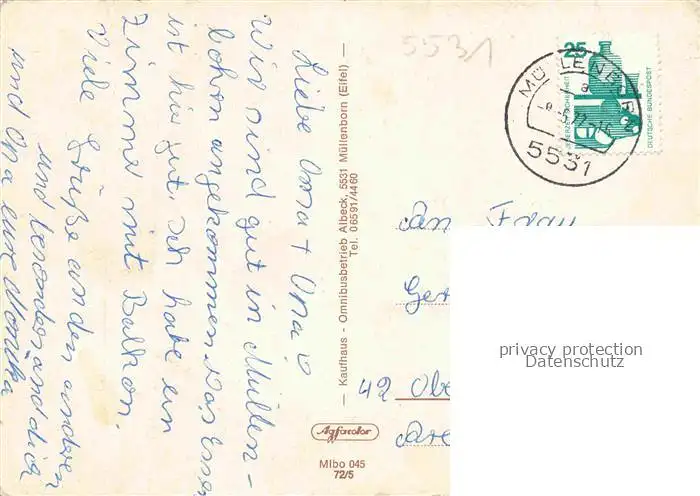 Liebe Oma + Opa!
Wir sind gut in Müllen-
born angekommen. Das Essen
ist hier gut. Ich habe ein
Zimmer mit Balkon.
Viele Grüße an den anderen
und besonders an dich
und Opa eure Monika
— Kaufhaus - Omnibusbetrieb Albeck, 5531 Müllenborn (Eifel) —
Tel. 06591/4460
5531
25
JEDERZEIT SICHERHEIT
DEUTSCHE BUNDESPOST
5531
An Frau
Ger
42 Obe
privacy protection
Datenschutz
Agfacolor
Mlbo 045
72/5